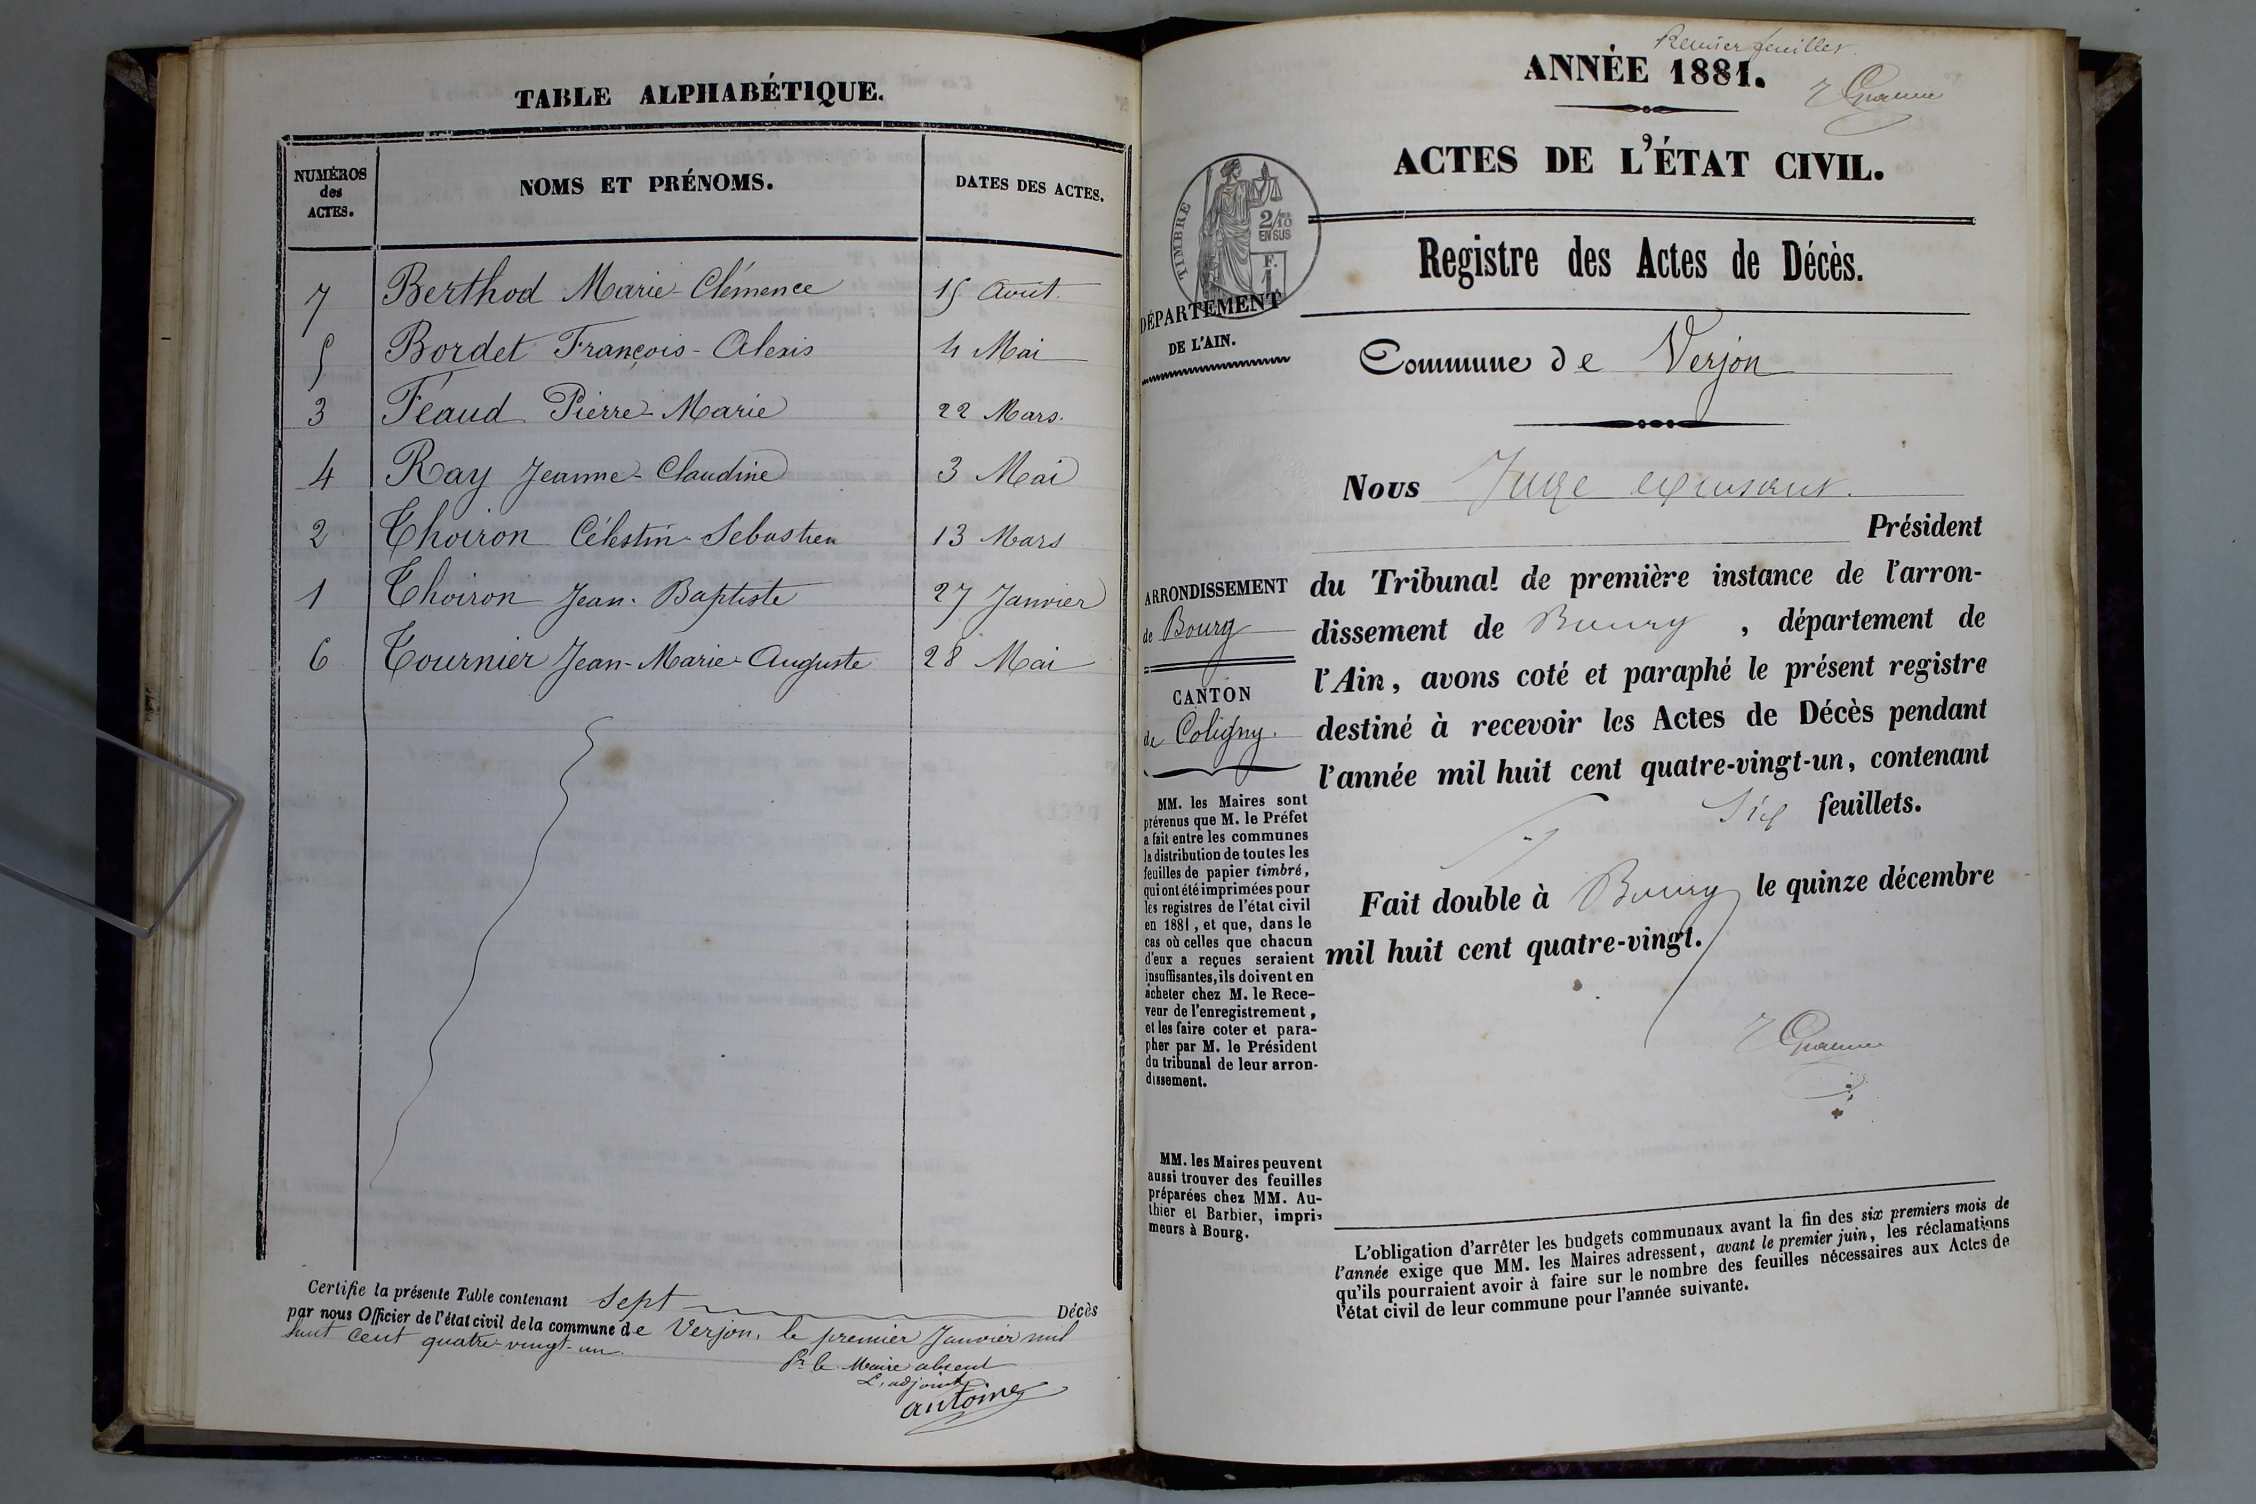 TABLE ALPHABÉTIQUE.
NUMÉROS des ACTES. NOMS ET PRÉNOMS. DATES DES ACTES.
7 Berthod Marie-Clémence 15 Août.
5 Bordet François-Alexis 4 Mai
3 Féaud Pierre-Marie 22 Mars.
4 Ray Jeanne-Claudine 3 Mai
2 Thoiron Célestin-Sebastien 13 Mars
1 Thoiron Jean-Baptiste 27 Janvier
6 Tournier Jean-Marie-Auguste 28 Mai
Certifie la présente Table contenant sept Décès
par nous Officier de l'état civil de la commune de Verjon, le premier Janvier mil
huit cent quatre-vingt-un.
Pr le Maire absent
L'adjoint
Antoine
Premier feuillet.
ANNÉE 1881.
ACTES DE L'ÉTAT CIVIL.
TIMBRE
2/10
EN SUS
F.
1
Registre des Actes de Décès.
DÉPARTEMENT
DE L'AIN.
Commune de Verjon
Nous Juge
Président
du Tribunal de première instance de l'arron-
dissement de Bourg, département de
l'Ain, avons coté et paraphé le présent registre
destiné à recevoir les Actes de Décès pendant
l'année mil huit cent quatre-vingt-un, contenant
Six feuillets.
Fait double à Bourg le quinze décembre
mil huit cent quatre-vingt.
ARRONDISSEMENT
de Bourg
CANTON
de Coligny.
MM. les Maires sont
prévenus que M. le Préfet
a fait entre les communes
la distribution de toutes les
feuilles de papier timbré,
qui ont été imprimées pour
les registres de l'état civil
en 1881, et que, dans le
cas où celles que chacun
d'eux a reçues seraient
insuffisantes, ils doivent en
acheter chez M. le Rece-
veur de l'enregistrement,
et les faire coter et para-
pher par M. le Président
du tribunal de leur arron-
dissement.
MM. les Maires peuvent
aussi trouver des feuilles
préparées chez MM. Au-
thier et Barbier, impri-
meurs à Bourg.
L'obligation d'arrêter les budgets communaux avant la fin des six premiers mois de
l'année exige que MM. les Maires adressent, avant le premier juin, les réclamations
qu'ils pourraient avoir à faire sur le nombre des feuilles nécessaires aux Actes de
l'état civil de leur commune pour l'année suivante.